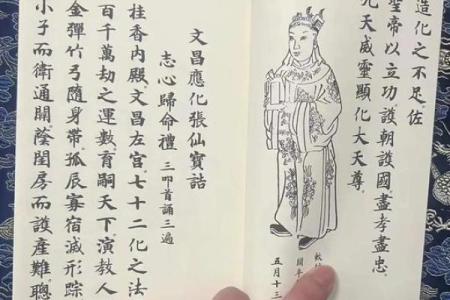 造化之不足。佐
聖帝以立功。護朝護國盡孝盡忠。
九天威靈顯化大天尊
五月十三
文昌應化張仙寶誥
志心歸命禮 三叩首誦三遍
桂香內殿。文昌左宮。七十二化之法
百千萬劫之運數。育嗣天下。演教人
金彈竹弓隨身帶。孤辰寡宿滅形踪
小子而衛通關。蔭閨房而護產難。聰